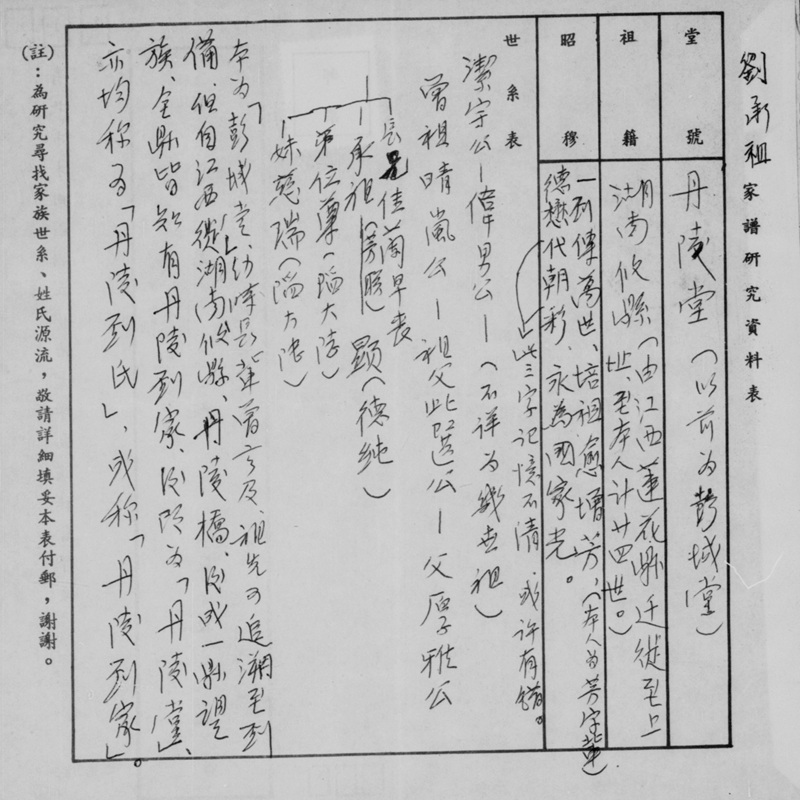 劉承祖家譜研究資料表
堂號 丹陵堂（以前为彭城堂）
祖籍 湖南攸縣（由江西蓮花縣迁徙至上
世、至本人計廿四世。）
昭穆 一到傳萬世、培祖愈增芳、（本人为芳字輩）
德懋代朝彩、永為國家光。
此三字记憶不清、或许有錯。
世系表
潔宇公－偉男公－（不詳为幾世祖）
曾祖晴嵐公－祖父此公－父厚雅公
長兄佳蘭早丧
承祖（芳）顯（德純）
弟位尊（陷大陸）
妹慈瑞（陷大陸）
本为「彭城堂」、幼時長輩曾言及、祖先可追溯至刘
備、但自江西徙湖南攸縣、丹陵橋、後成一縣望
族、全縣皆知有丹陵刘家、後改为「丹陵堂」、
亦均称为「丹陵刘氏」、或称「丹陵刘家」。
(註)：為研究尋找家族世系、姓氏源流，敬請詳細填妥本表付郵，謝謝。